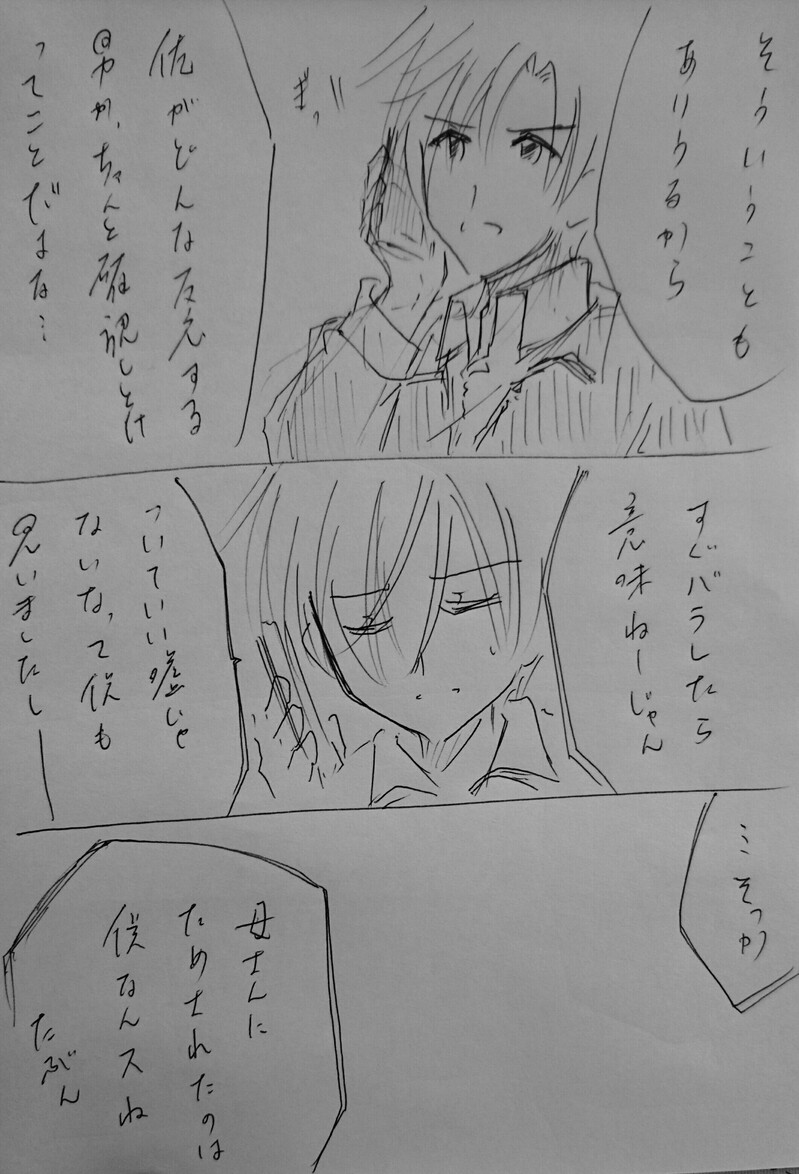 そういうことも
ありうるから
ぎっ
彼がどんな反応する
男か、ちゃんと確認しとけ
ってことだよな…
すぐバラしたら
意味ねーじゃん
ついていい嘘じゃ
ないな、って僕も
思いましたし──
…そっか
母さんに
ためされたのは
僕なんスね
たぶん